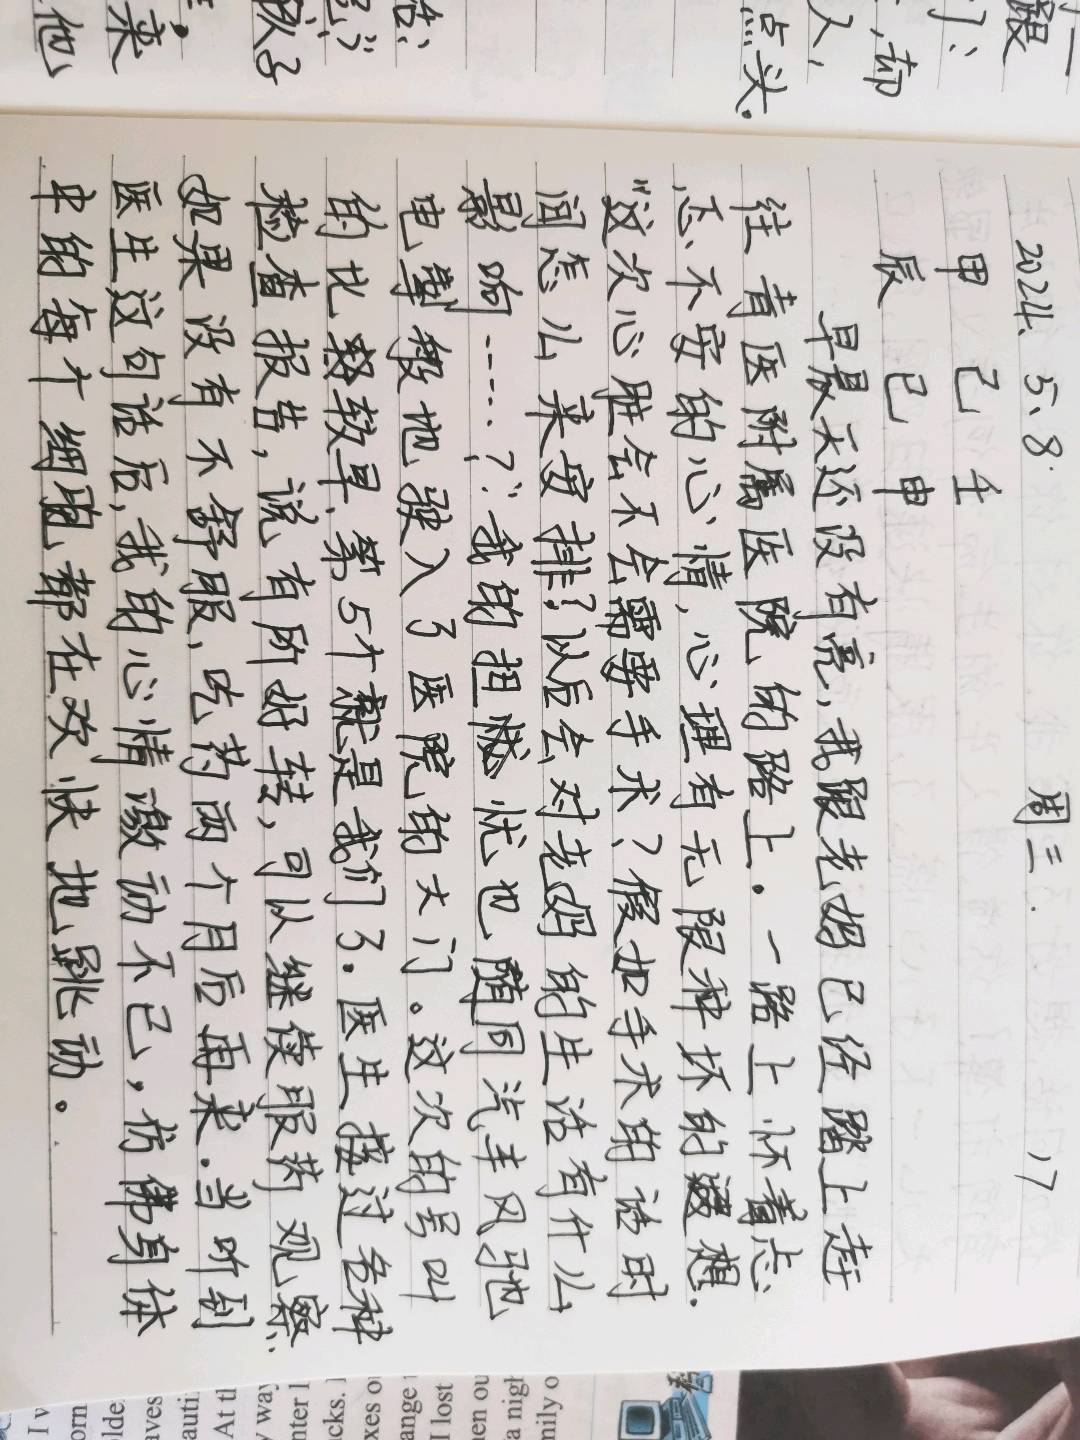 跟
们、
，却
人，
点头。
结、
队了
。
来
他
2024、5、8. 周三. 17
甲 己 壬
辰 巳 申
早晨天还没有亮，我跟老妈已经踏上赶
往青医附属医院的路上。一路上怀着忐
忑不安的心情，心理有无限种坏的遐想.
“这次心脏会不会需要手术？假如手术的话时
间怎么来安排？以后会对老妈的生活有什么
影响……？”我的担忧也随同汽车风驰
电掣般地驶入了医院的大门。这次的号叫
的比较早，第5个就是我们了。医生接过各种
检查报告，说有所好转，可以继续服药观察.
如果没有不舒服，吃药两个月后再来.当听到
医生这句话后，我的心情激动不已，仿佛身体
中的每个细胞都在欢快地跳动。
mily o
a nigh
hen ou
I lost
ange
xes o
cks. I
nter l
y way
At th
auti
aves
olde
orn
I v